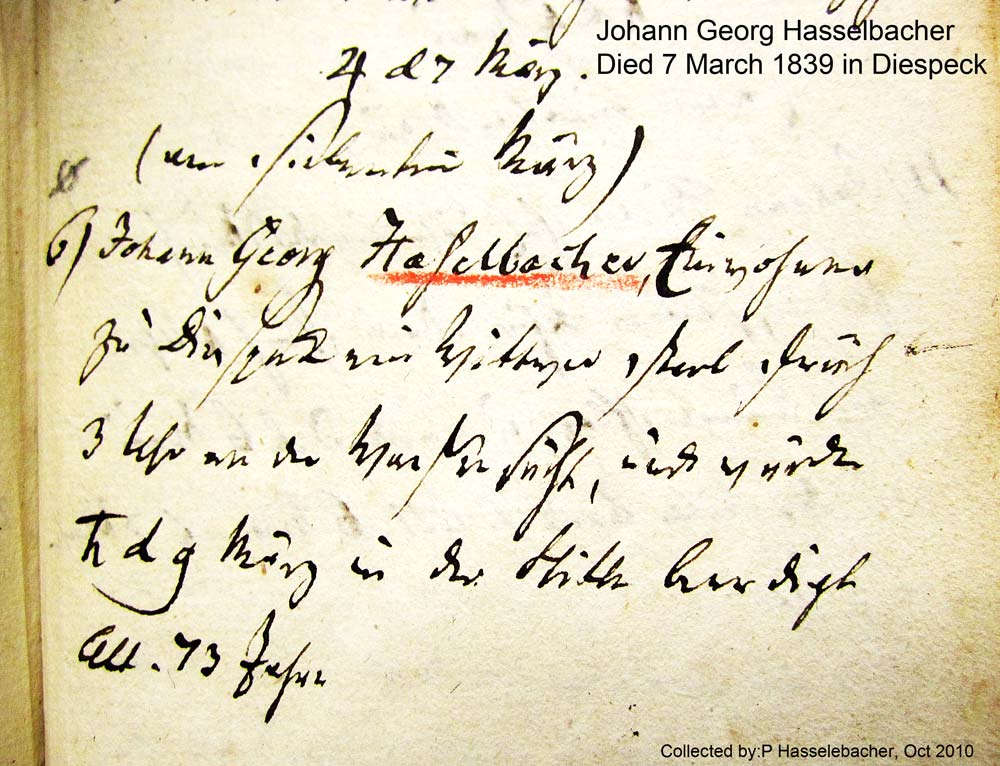 Johann Georg Hasselbacher
Died 7 March 1839 in Diespeck
♃ d 7 März.
(am siebenten März)
6) Johann Georg Haßelbacher, Einwohner
zu Diespeck ein Wittwer starb früh
3 Uhr an der Wassersucht, und wurde
♄ d 9 März in der Stille beerdigt
Alt. 73 Jahre
Collected by:P Hasselebacher, Oct 2010